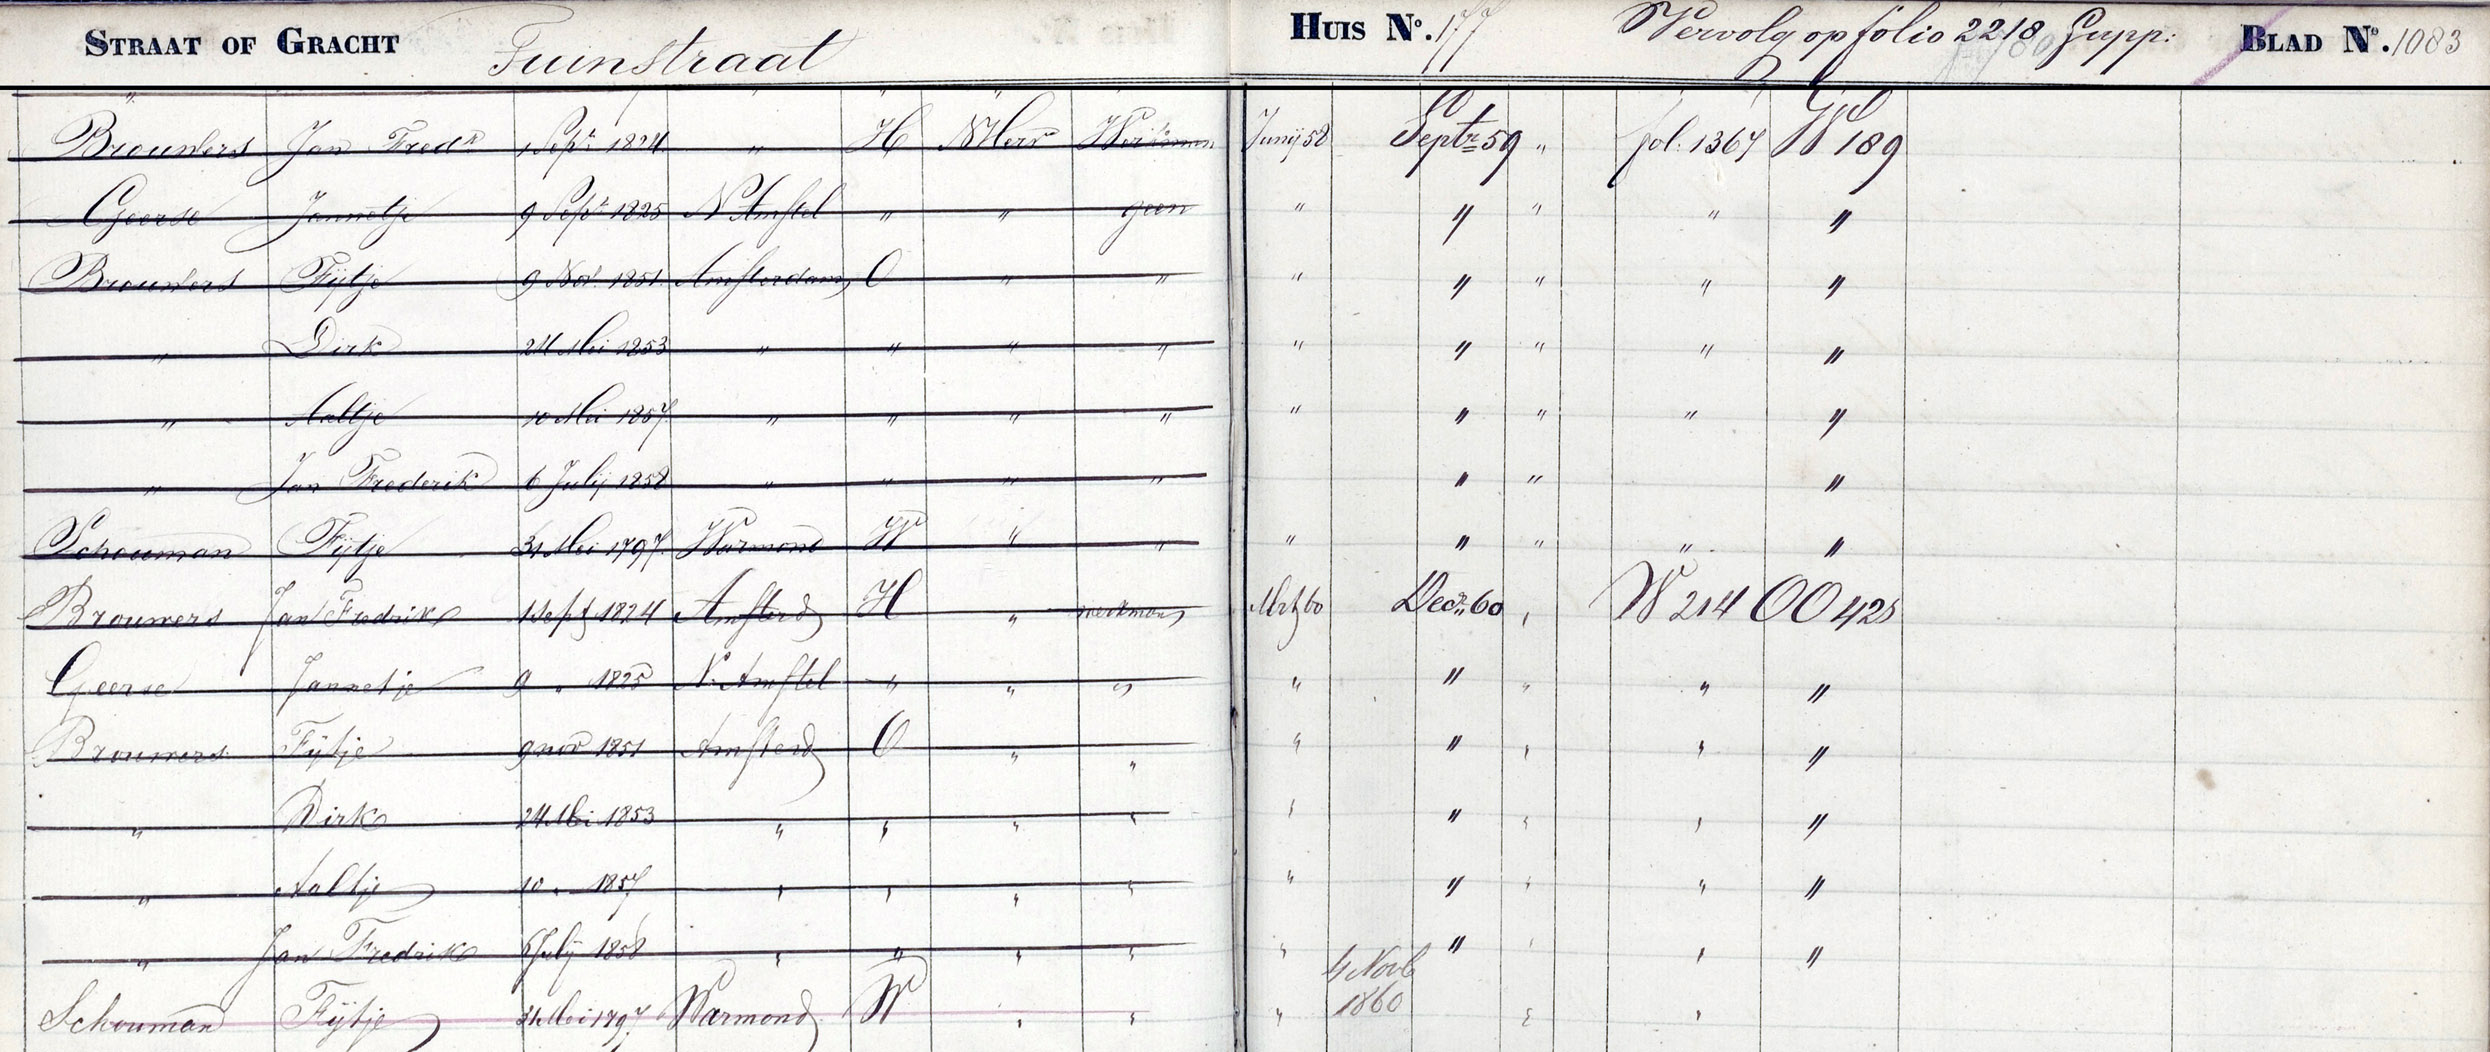 STRAAT OF GRACHT Tuinstraat HUIS No. 177 Vervolg op folio 2218 Supp: BLAD No. 1083
Brouwers Jan Fredk 1 Sept 1824 " H NHerv Werkman Junij 58 Septr 59 " fol. 1367 W 189
Geerse Jannetje 9 Sept 1825 N Amstel " " geen " " " " "
Brouwers Fijtje 9 Nov 1851 Amsterdam O " " " " " " "
" Dirk 24 Mei 1853 " " " " " " " " "
" Aaltje 10 Mei 1857 " " " " " " " " "
" Jan Frederik 6 Julij 1858 " " " " " " "
Schouman Fijtje 31 Mei 1797 Warmond W " " " " " " "
Brouwers Jan Fredrik 1 Sept 1824 Amsterd H " werkman Mrt 60 Decr 60 " W 214 OO 425
Geerse Jannetje 9 " 1825 N. Amstel " " " " " " " "
Brouwers Fijtje 9 nov 1851 Amsterd O " " " " " " "
" Dirk 24 Mei 1853 " " " " " " " " "
" Aaltje 10 " 1857 " " " " " " " " "
" Jan Fredrik 6 Julij 1858 " " " " " " " " "
Schouman Fijtje 31 Mei 1797 Warmond W " " " 4 Novb 1860 " "